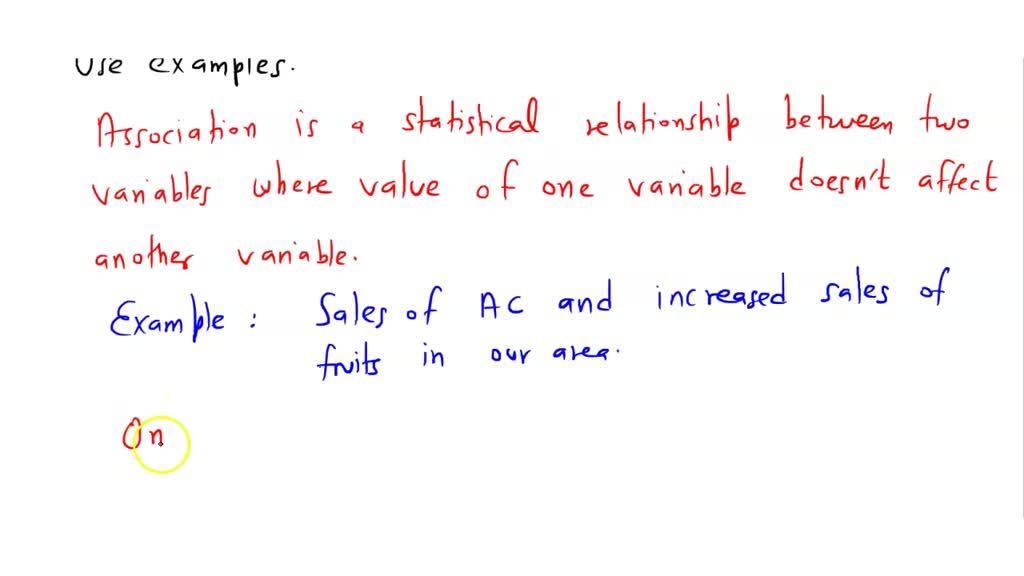 use examples.
Association is a statistical relationship between two
variables where value of one variable doesn't affect
another variable.
Example : Sales of AC and increased sales of
fruits in our area.
On